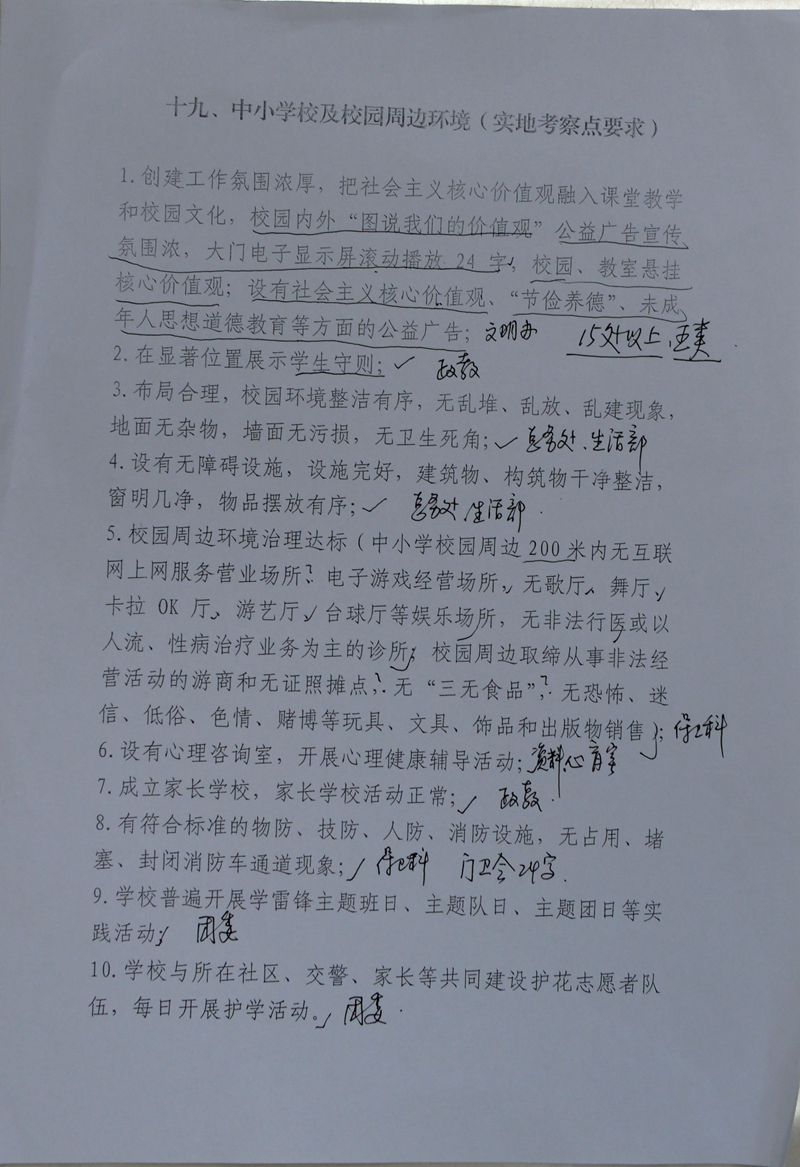 十九、中小学校及校园周边环境（实地考察点要求）
1.创建工作氛围浓厚，把社会主义核心价值观融入课堂教学
和校园文化，校园内外“图说我们的价值观”公益广告宣传
氛围浓，大门电子显示屏滚动播放 24 字，校园、教室悬挂
核心价值观；设有社会主义核心价值观、“节俭养德”、未成
年人思想道德教育等方面的公益广告；文明办 15处以上、
2.在显著位置展示学生守则；✓ 政教
3.布局合理，校园环境整洁有序，无乱堆、乱放、乱建现象，
地面无杂物，墙面无污损，无卫生死角；✓ 总务处、生活部
4.设有无障碍设施，设施完好，建筑物、构筑物干净整洁，
窗明几净，物品摆放有序；✓ 总务处、生活部
5.校园周边环境治理达标（中小学校园周边 200 米内无互联
网上网服务营业场所、电子游戏经营场所，无歌厅、舞厅、
卡拉 OK 厅、游艺厅、台球厅等娱乐场所，无非法行医或以
人流、性病治疗业务为主的诊所；校园周边取缔从事非法经
营活动的游商和无证照摊点，无“三无食品”，无恐怖、迷
信、低俗、色情、赌博等玩具、文具、饰品和出版物销售）；保卫科
6.设有心理咨询室，开展心理健康辅导活动；资料、心育室
7.成立家长学校，家长学校活动正常；✓ 政教
8.有符合标准的物防、技防、人防、消防设施，无占用、堵
塞、封闭消防车通道现象；✓ 保卫科 门卫会24字
9.学校普遍开展学雷锋主题班日、主题队日、主题团日等实
践活动；✓ 团委
10.学校与所在社区、交警、家长等共同建设护花志愿者队
伍，每日开展护学活动。✓ 团委